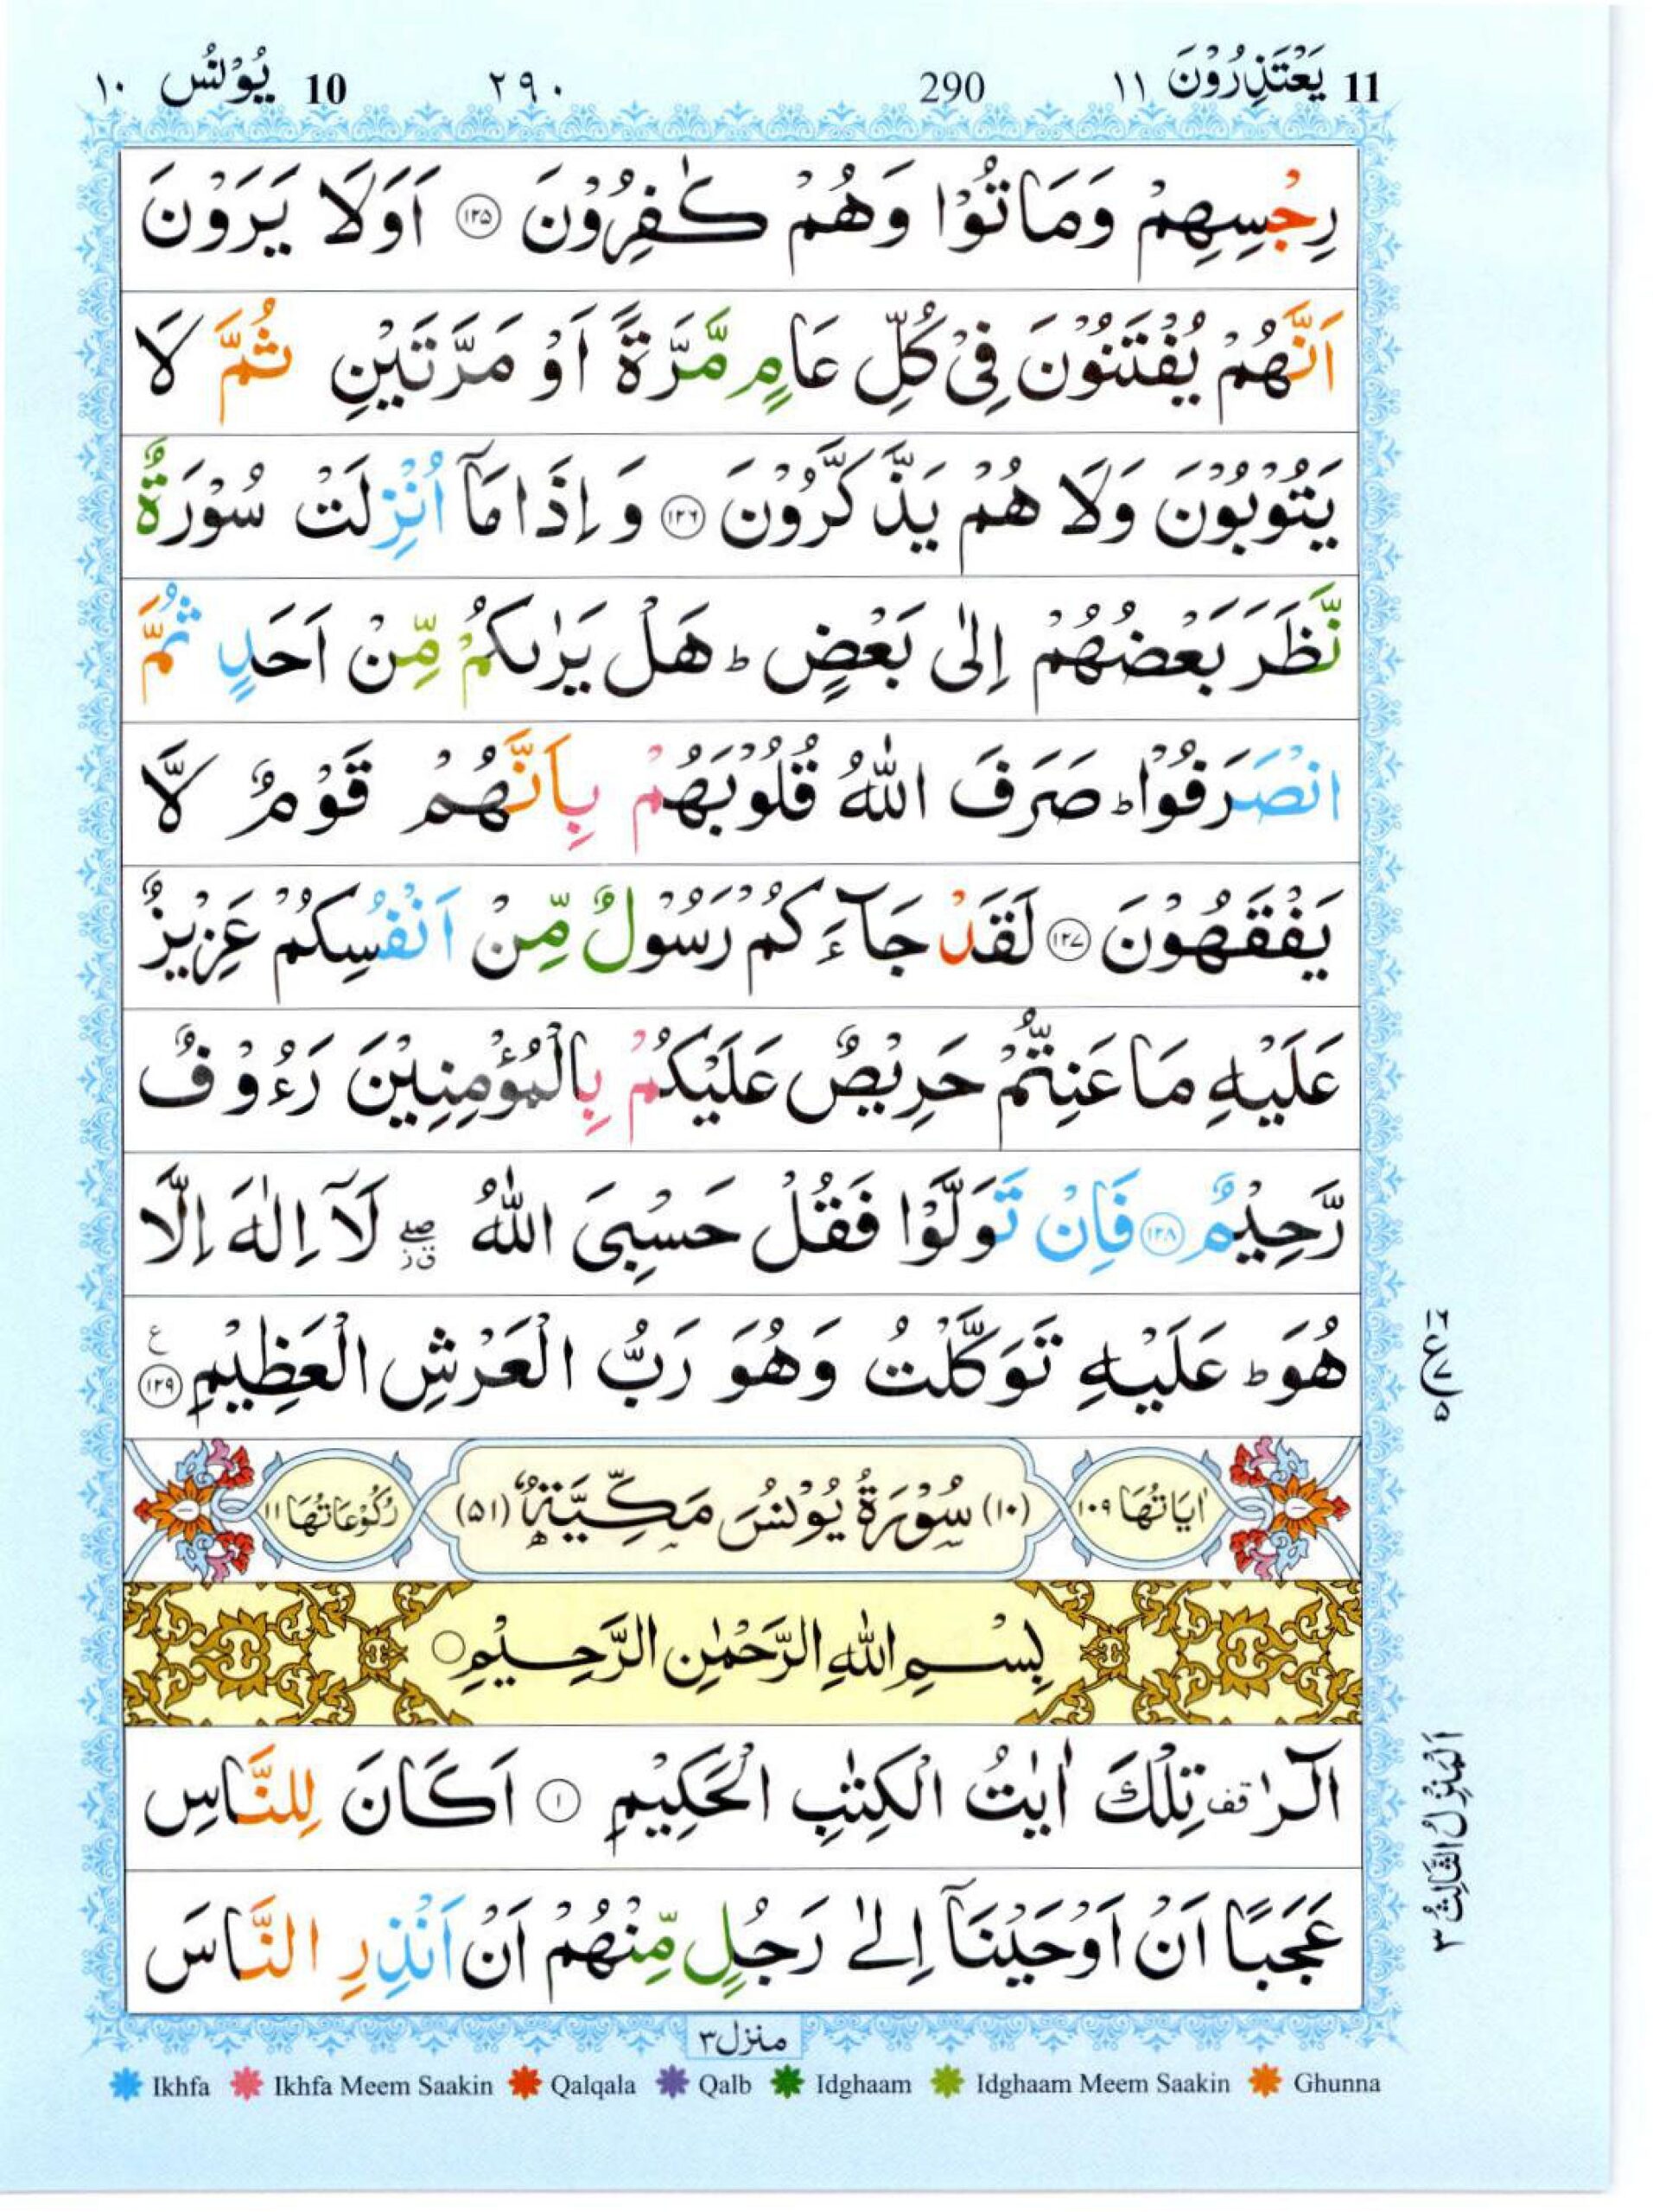 11 يَعْتَذِرُوْنَ ١١ 290 ٢٩٠ 10 يُوْنُس ١٠
رِجْسِهِمْ وَمَاتُوْا وَهُمْ كٰفِرُوْنَ ﴿۱۲۵﴾ اَوَلَا يَرَوْنَ
اَنَّهُمْ يُفْتَنُوْنَ فِىْ كُلِّ عَامٍ مَّرَّةً اَوْ مَرَّتَيْنِ ثُمَّ لَا
يَتُوْبُوْنَ وَلَا هُمْ يَذَّكَّرُوْنَ ﴿۱۲۶﴾ وَ اِذَا مَاۤ اُنْزِلَتْ سُوْرَةٌ
نَّظَرَ بَعْضُهُمْ اِلٰى بَعْضٍ ؕ هَلْ يَرٰىكُمْ مِّنْ اَحَدٍ ثُمَّ
انْصَرَفُوْا ؕ صَرَفَ اللّٰهُ قُلُوْبَهُمْ بِاَنَّهُمْ قَوْمٌ لَّا
يَفْقَهُوْنَ ﴿۱۲۷﴾ لَقَدْ جَآءَكُمْ رَسُوْلٌ مِّنْ اَنْفُسِكُمْ عَزِيْزٌ
عَلَيْهِ مَا عَنِتُّمْ حَرِيْصٌ عَلَيْكُمْ بِالْمُؤْمِنِيْنَ رَءُوْفٌ
رَّحِيْمٌ ﴿۱۲۸﴾ فَاِنْ تَوَلَّوْا فَقُلْ حَسْبِىَ اللّٰهُ ۖ ق ز لَاۤ اِلٰهَ اِلَّا
هُوَ ؕ عَلَيْهِ تَوَكَّلْتُ وَهُوَ رَبُّ الْعَرْشِ الْعَظِيْمِ ﴿۱۲۹﴾ ع
اٰيَاتُهَا ١٠٩ (١٠) سُوْرَةُ يُوْنُسَ مَكِّيَّةٌ (٥١) رُكُوْعَاتُهَا ١١
بِسْمِ اللّٰهِ الرَّحْمٰنِ الرَّحِيْمِ
الٓرٰ قف تِلْكَ اٰيٰتُ الْكِتٰبِ الْحَكِيْمِ ﴿۱﴾ اَكَانَ لِلنَّاسِ
عَجَبًا اَنْ اَوْحَيْنَاۤ اِلٰى رَجُلٍ مِّنْهُمْ اَنْ اَنْذِرِ النَّاسَ
منزل ٣
Ikhfa Ikhfa Meem Saakin Qalqala Qalb Idghaam Idghaam Meem Saakin Ghunna
١٦ ع ٧ ٥
اَلْمَنْزِلُ الثَّالِثُ ٣